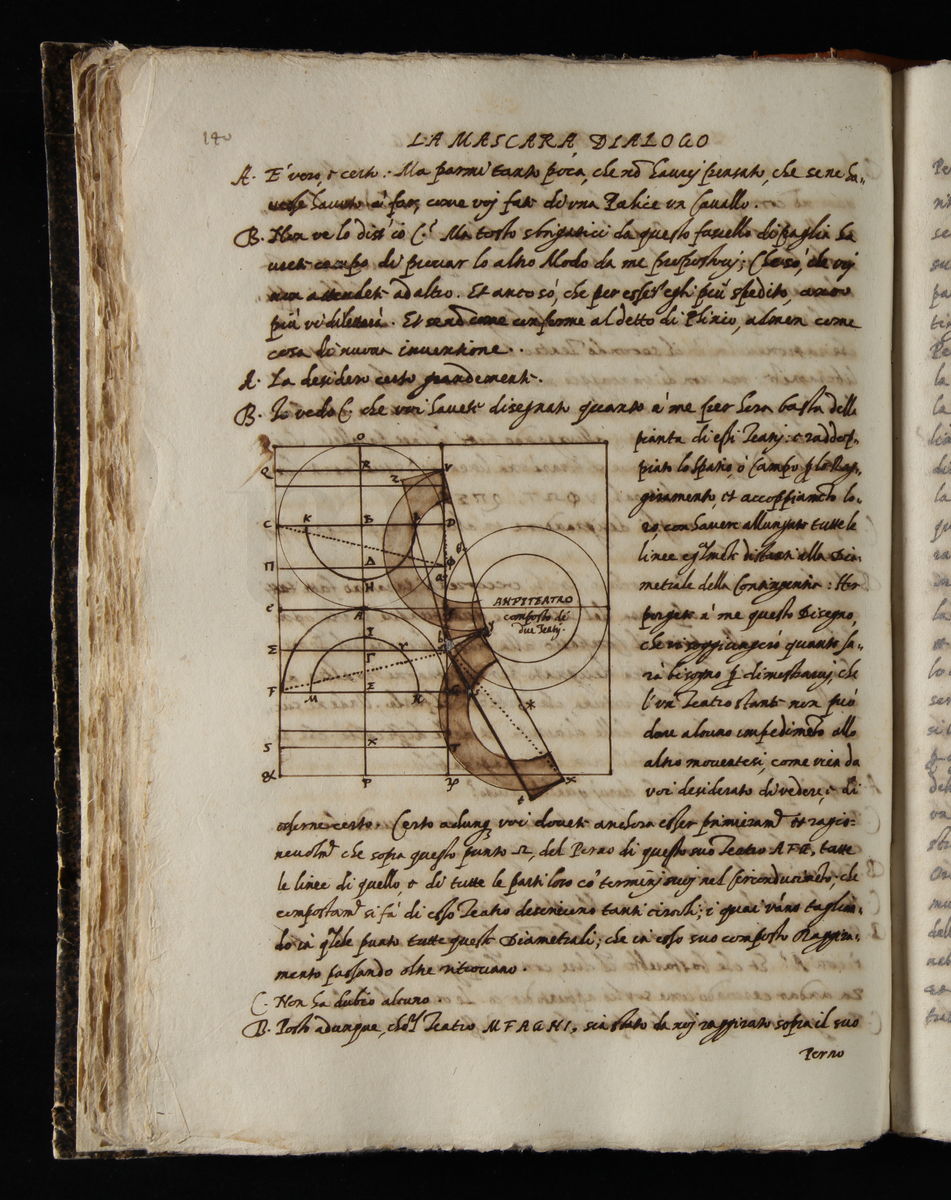 140
LA MASCARA, DIALOGO
A. E' vero, e certo. Ma parmi tanto poca, che nõ havrej pensato, che se ne ha,,
havuto à far, come voj fate di una Pulice un Cavallo.
B. Non ve lo diss' io C.? Ma tosto sbrigatici da questo fascello di paglia ha
vrete campo di provar lo altro Modo da me propostovj; Che so', che voj
non attendete ad altro. Et anco so', che per esser egli più spedito, ancora
più vi diletterà. Et send come conforme al detto di Plinio, almen come
cosa di nuova inventione.
A. La desidero certo grandemente.
B. Io vedo C. che voi havete disegnato quanto à me per hora basta della
pianta di essi Teatrj: e raddop,,
piato lo spatio, ò Campo p lo Rag,,
giramento, et accoppiamento lo,,
ro, con havere allungato tutte le
linee distanti alla Dia
metrale della Contingentia: Hor
porgete à me questo Disegno,
che vi soggiungerò quanto sa,,
rà bisogno p dimostrarvj, che
l' un Teatro stante non può
dare alcuno impedimẽto allo
altro moventesi, come vien da
voi desiderato di vedere, e di
certo. Certo adunq voi dovete anchora esser primieramẽ et ragio:
nevolmẽ che sopra questo punto Ω, del Perno di questo suo Teatro AFG, tutte
le linee di quello, e di tutte le parti loro cõ terminj suoj nel circonducimẽto, che
compostamẽ si fà di esso Teatro descrivono tanti circoli; i quai vanno taglian,,
do in punto tutte queste Diametrali; che in esso suo composto Raggira,,
mento passando oltre ritrovano.
C. Non ha dubio alcuno.
B. Posto adunque, Teatro MFAGNI, sia stato da noj raggirato sopra il suo
Perno
AMPITEATRO
composto de
due Teatrj.